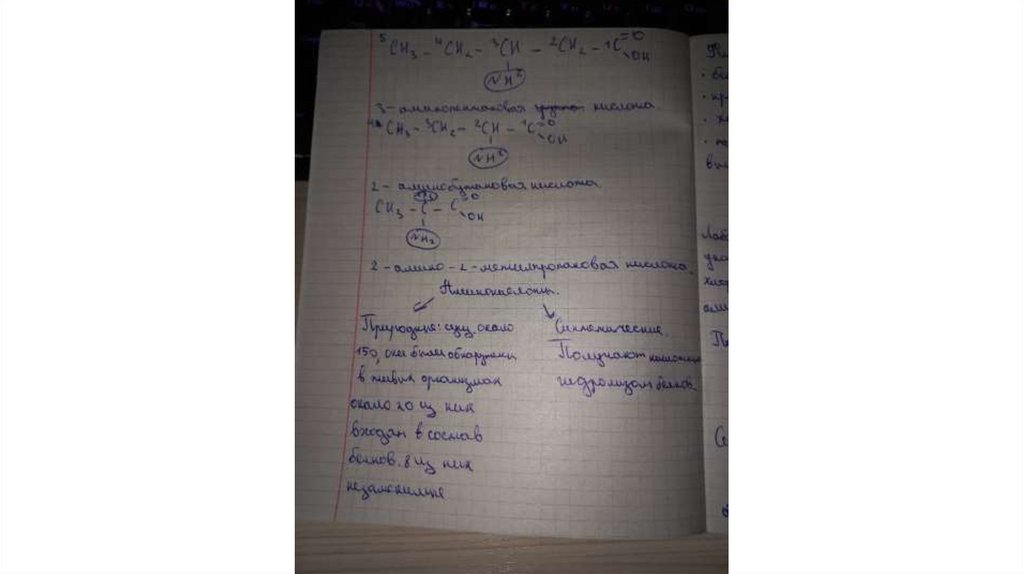 5CH3 - 4CH2 - 3CH - 2CH2 - 1C =O
OH
NH2
3-аминопентановая группа кислота
4CH3 - 3CH2 - 2CH - 1C =O
OH
NH2
2-аминобутановая кислота
CH3 - C - C =O
OH
NH2
2-амино-2-метилпропановая кислота.
Аминокислоты.
Природные: сущ. около
150, они были обнаружены
в живых организмах
около 20 из них
входят в состав
белков. 8 из них
незаменимые
Синтетические.
Получают кислотным
гидролизом белков